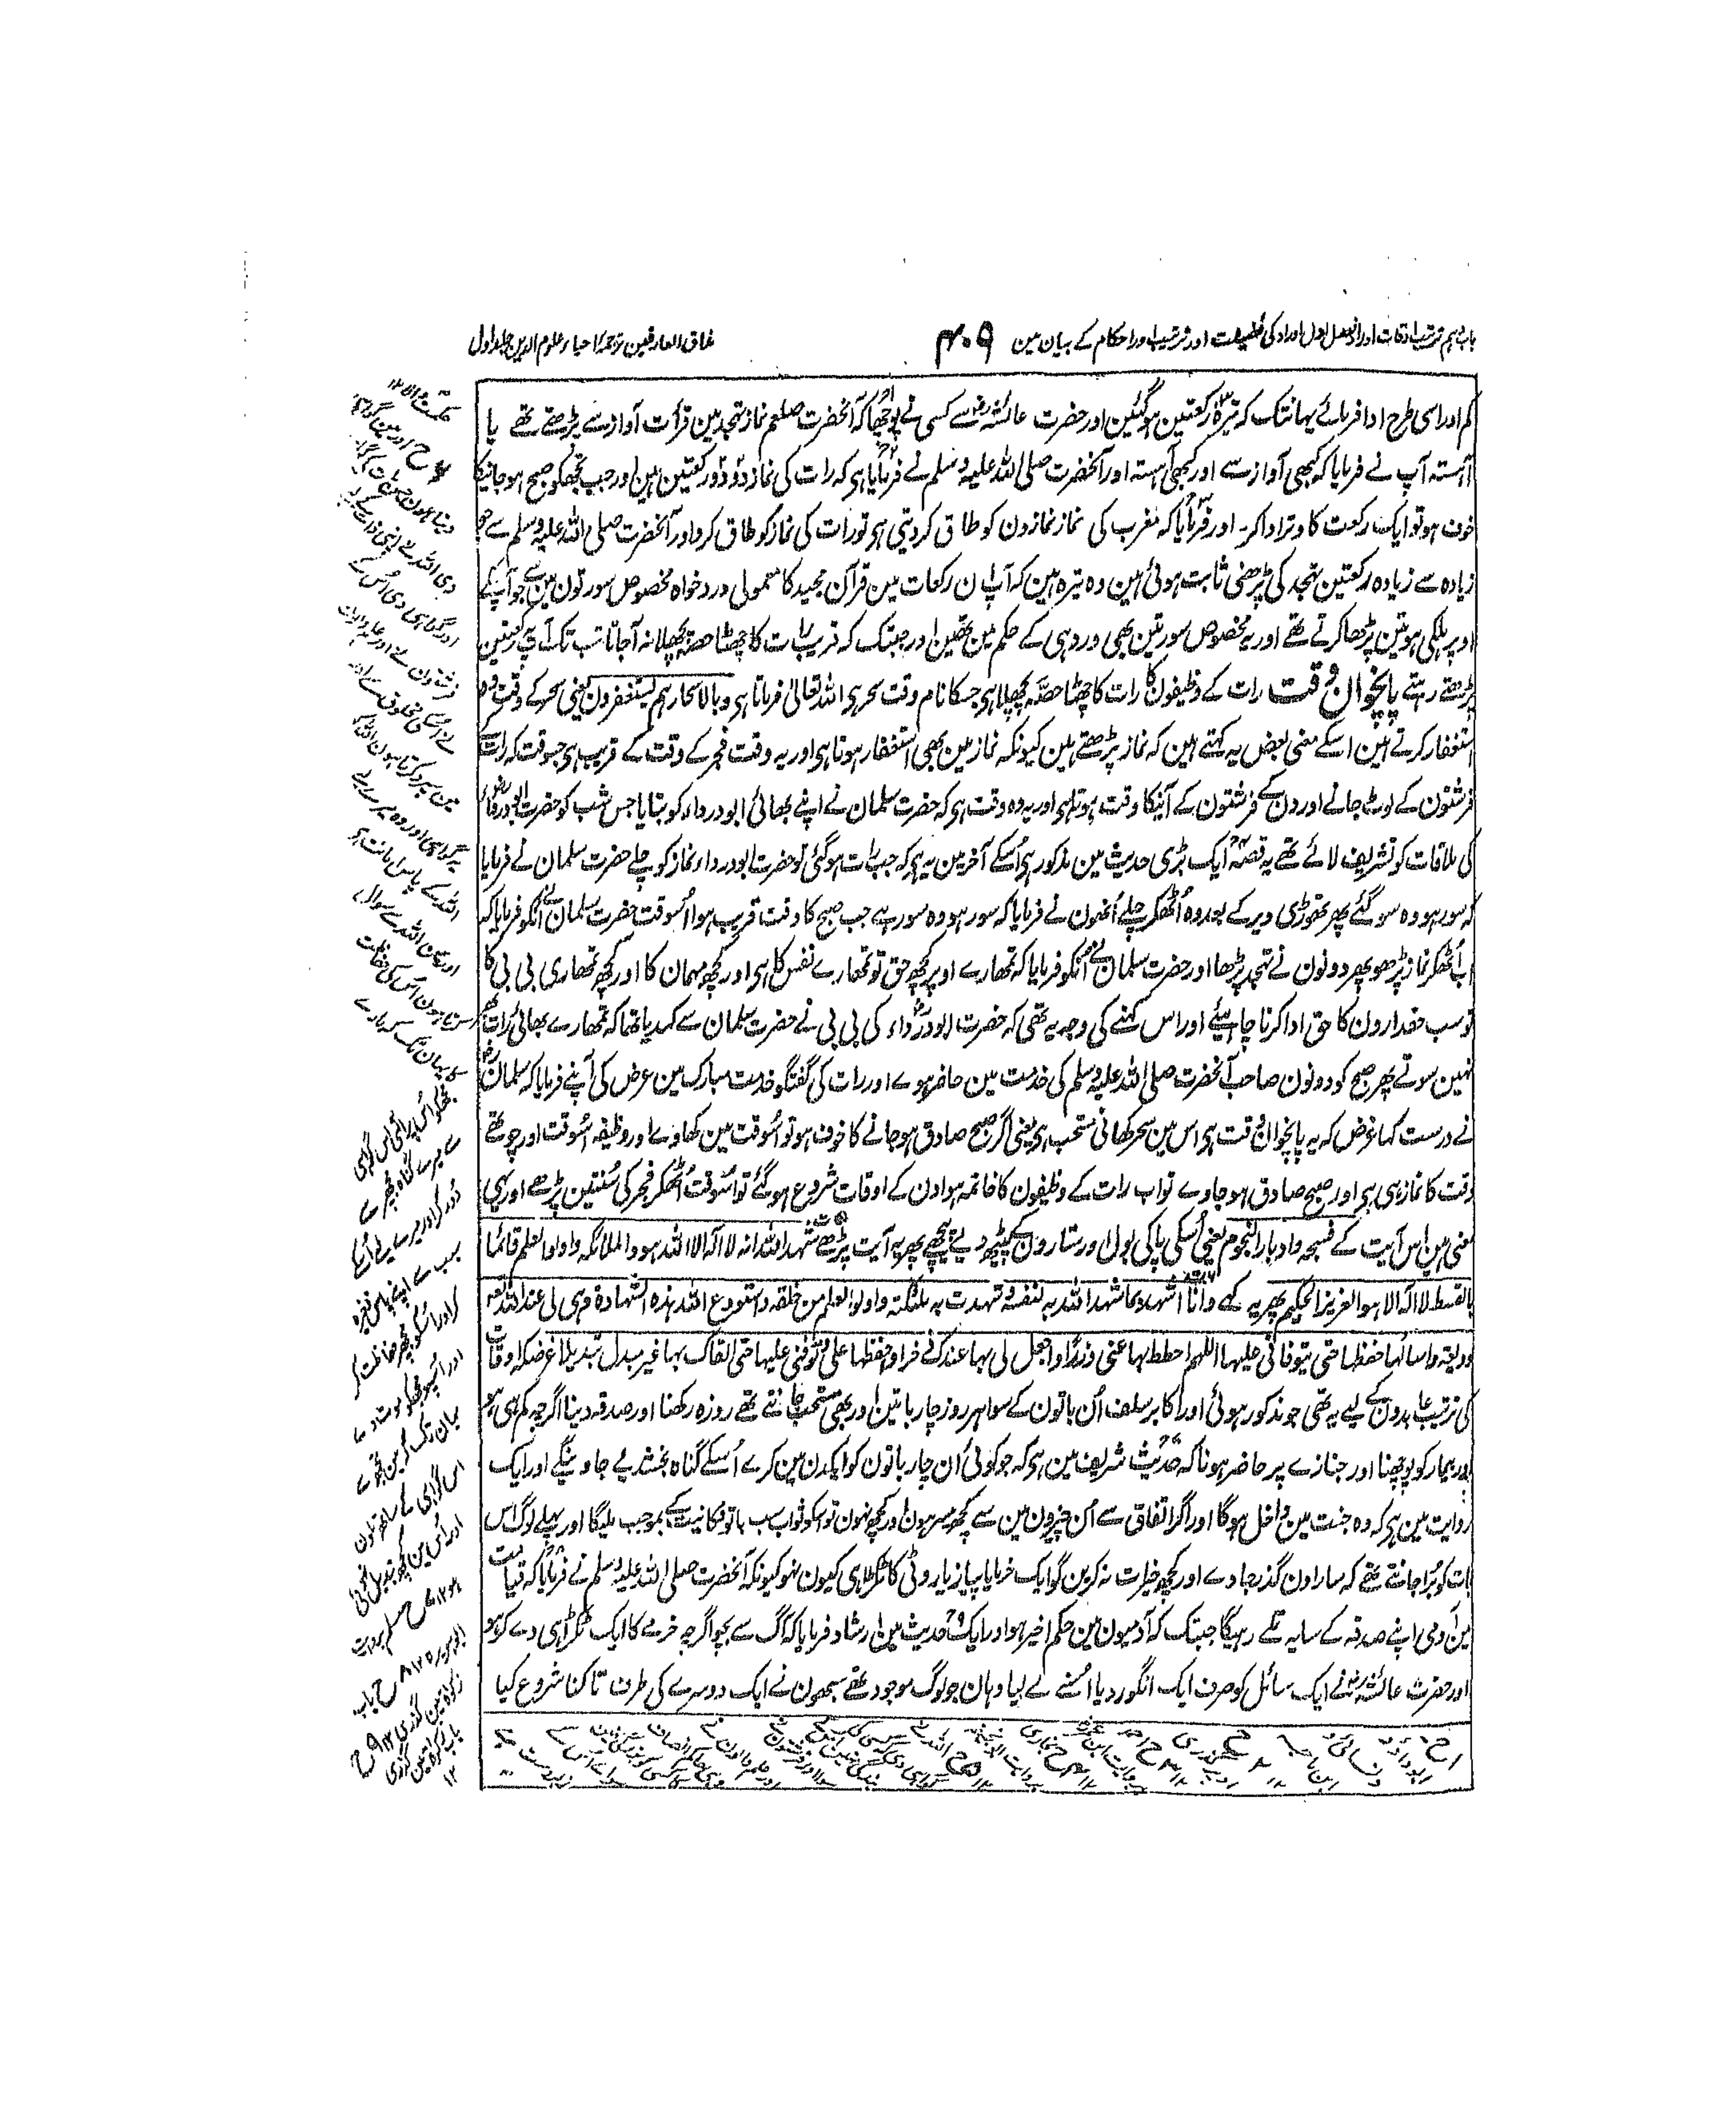 باب دہم ترتیب اوقات اوراد فصل اول اوراد کی فضیلت اور ترتیب اور احکام کے بیان مین
۴۰۹
مذاق العارفین ترجمۂ احیاء علوم الدین جلد اول
کم اور اسی طرح ادا فرمائے یہانتک کہ تیرہ رکعتین ہوگئین اور حضرت عائشہ رضہ سے کسی نے پوچھا کہ آنحضرت صلعم نماز تہجد مین قرأت آواز سے پڑھتے تھے یا
آہستہ آپ نے فرمایا کہ کبھی آواز سے اور کبھی آہستہ اور آنحضرت صلی اللہ علیہ وسلم نے فرمایا ہی کہ رات کی نماز دو دو رکعتین ہین اور جب تجھکو صبح ہوجانیکا
خوف ہو تو ایک رکعت کا وتر ادا کر۔ اور فرمایا کہ مغرب کی نماز نماز دن کو طاق کر دیتی ہی تو رات کی نماز کو طاق کرو اور آنحضرت صلی اللہ علیہ وسلم سے جو
زیادہ سے زیادہ رکعتین تہجد کی پڑھنی ثابت ہوئی ہین وہ تیرہ ہین کہ آپ ان رکعات مین قرآن مجید کا معمولی ورد خواہ مخصوص سورتون مین سے جو آپکے
اوپر ہلکی ہوتین پڑھا کرتے تھے اور یہ مخصوص سورتین بھی ورد ہی کے حکم مین تھین اور جبتک کہ قریب رات کا چھٹا حصہ پچھلا نہ آجاتا تب تک آپ یہ رکعتین
پڑھتے رہتے پانچوان وقت رات کے وظیفون کا رات کا چھٹا حصہ پچھلا ہی جسکا نام وقت سحر ہی اللہ تعالیٰ فرماتا ہی وبالاسحار ہم یستغفرون یعنی سحر کے وقت وہ
استغفار کرتے ہین اسکے معنی بعض یہ کہتے ہین کہ نماز پڑھتے ہین کیونکہ نماز مین بھی استغفار ہوتا ہی اور یہ وقت فجر کے وقت کے قریب ہی جسوقت کہ رات کے
فرشتون کے لوٹ جانے اور دن کے فرشتون کے آنیکا وقت ہوتا ہی اور یہ وہ وقت ہی کہ حضرت سلمان نے اپنے بھائی ابو درداء کو بتایا جس شب کو حضرت ابو درداء
کی ملاقات کو تشریف لائے تھے یہ قصہ ایک بڑی حدیث مین مذکور ہی اُسکے آخر مین یہ ہی کہ جب رات ہوگئی تو حضرت ابو درداء نماز کو چلے حضرت سلمان نے فرمایا
کہ سو رہو وہ سو گئے پھر تھوڑی دیر کے بعد وہ اُٹھکر چلے اُنھون نے فرمایا کہ سو رہو وہ سو رہے جب صبح کا وقت قریب ہوا اُسوقت حضرت سلمان نے انکو فرمایا کہ
اب اُٹھکر نماز پڑھو پھر دونون نے تہجد پڑھا اور حضرت سلمان نے انکو فرمایا کہ تمھارے اوپر کچھ حق تو تمھارے نفس کا ہی اور کچھ مہمان کا اور کچھ تمھاری بی بی کا
تو سب حقدارون کا حق ادا کرنا چاہیئے اور اس کہنے کی وجہ یہ تھی کہ حضرت ابو درداء کی بی بی نے حضرت سلمان سے کہدیا تھا کہ تمھارے بھائی رات بھر
نہین سوتے پھر صبح کو دونون صاحب آنحضرت صلی اللہ علیہ وسلم کی خدمت مین حاضر ہوے اور رات کی گفتگو خدمت مبارک مین عرض کی آپنے فرمایا کہ سلمان
نے درست کہا غرض کہ یہ پانچوان وقت ہی اس مین سحر کھانی مستحب ہی یعنی اگر صبح صادق ہوجانے کا خوف ہو تو اُسوقت مین کھاوے اور وظیفہ اُسوقت اور چوتھے
وقت کا نماز ہی ہی اور صبح صادق ہو جاوے تو اب رات کے وظیفون کا خاتمہ ہوا دن کے اوقات شروع ہوگئے تو اُسوقت اُٹھکر فجر کی سنتین پڑھے اور یہی
معنی ہین اس آیت کے فسبحہ وادبار النجوم یعنی اُسکی پاکی بول اور ستارون کے پیٹھ دیے پیچھے پھر یہ آیت پڑھے شہد اللہ انہ لا الہ الا اللہ ہو والملائکۃ واولوا العلم قائما
بالقسط لا الہ الا ہو العزیز الحکیم پھر یہ کہے وانا اشہد بما شہد اللہ بہ لنفسہ وشہدت بہ ملئکتہ واولوا العلم من خلقہ واستودع اللہ ہذہ الشہادۃ وہی لی عند اللہ تعالیٰ
ودیعۃ واسالہ حفظہا حتی یتوفانی علیہا اللہم احطط بہا عنی وزرا واجعل لی بہا عندک ذخرا واحفظہا علی وتوفنی علیہا حتی القاک بہا غیر مبدل تبدیلا غرضکہ اوقات
کی ترتیب عابدون کے لیے یہ تھی جو مذکور ہوئی اور اکابر سلف اُن باتون کے سوا ہر روز چار باتین اور بھی مستحب جانتے تھے روزہ رکھنا اور صدقہ دینا اگرچہ کم ہی ہو
اور بیمار کو پوچھنا اور جنازے پر حاضر ہونا کہ حدیث شریف مین ہی کہ جو کوئی ان چار باتون کو ایکدن مین کرے اُسکے گناہ بخشدیے جاوینگے اور ایک
روایت مین ہی کہ وہ جنت مین داخل ہوگا اور اگر اتفاق سے اُن چیزون مین سے کچھ میسر ہون اور کچھ نہون تو اسکو ثواب سب باتونکا نیت کے بموجب ملیگا اور پہلے لوگ اس
بات کو بُرا جانتے تھے کہ سارا دن گذر جاوے اور کچھ خیرات نہ کرین گو ایک خرما یا پیاز یا روٹی کا ٹکڑا ہی کیون نہو کیونکہ آنحضرت صلی اللہ علیہ وسلم نے فرمایا کہ قیامت
مین آدمی اپنے صدقہ کے سایہ تلے رہیگا جبتک کہ آدمیون مین حکم اخیر ہو اور ایک حدیث مین ارشاد فرمایا کہ آگ سے بچو اگرچہ خرمے کا ایک ٹکڑا ہی دے کر ہو
اور حضرت عائشہ رضہ نے ایک سائل کو صرف ایک انگور دیا اُسنے لے لیا وہان جو لوگ موجود تھے سبھون نے ایک دوسرے کی طرف تاکنا شروع کیا
مجھکو اُسپر الٰہی اس گواہی
سے میرے گناہ مجھ سے
دور کر اور میرے لیے اُسکے
سبب سے اپنے پاس ذخیرہ
کر اور اُسکو مجھپر حفاظت کر
اور اُسپر مجھکو موت دے
یہان تک کہ مین تجھ سے
اس گواہی کے ساتھ ملون
اور اُس مین کچھ تبدیل نہوئی